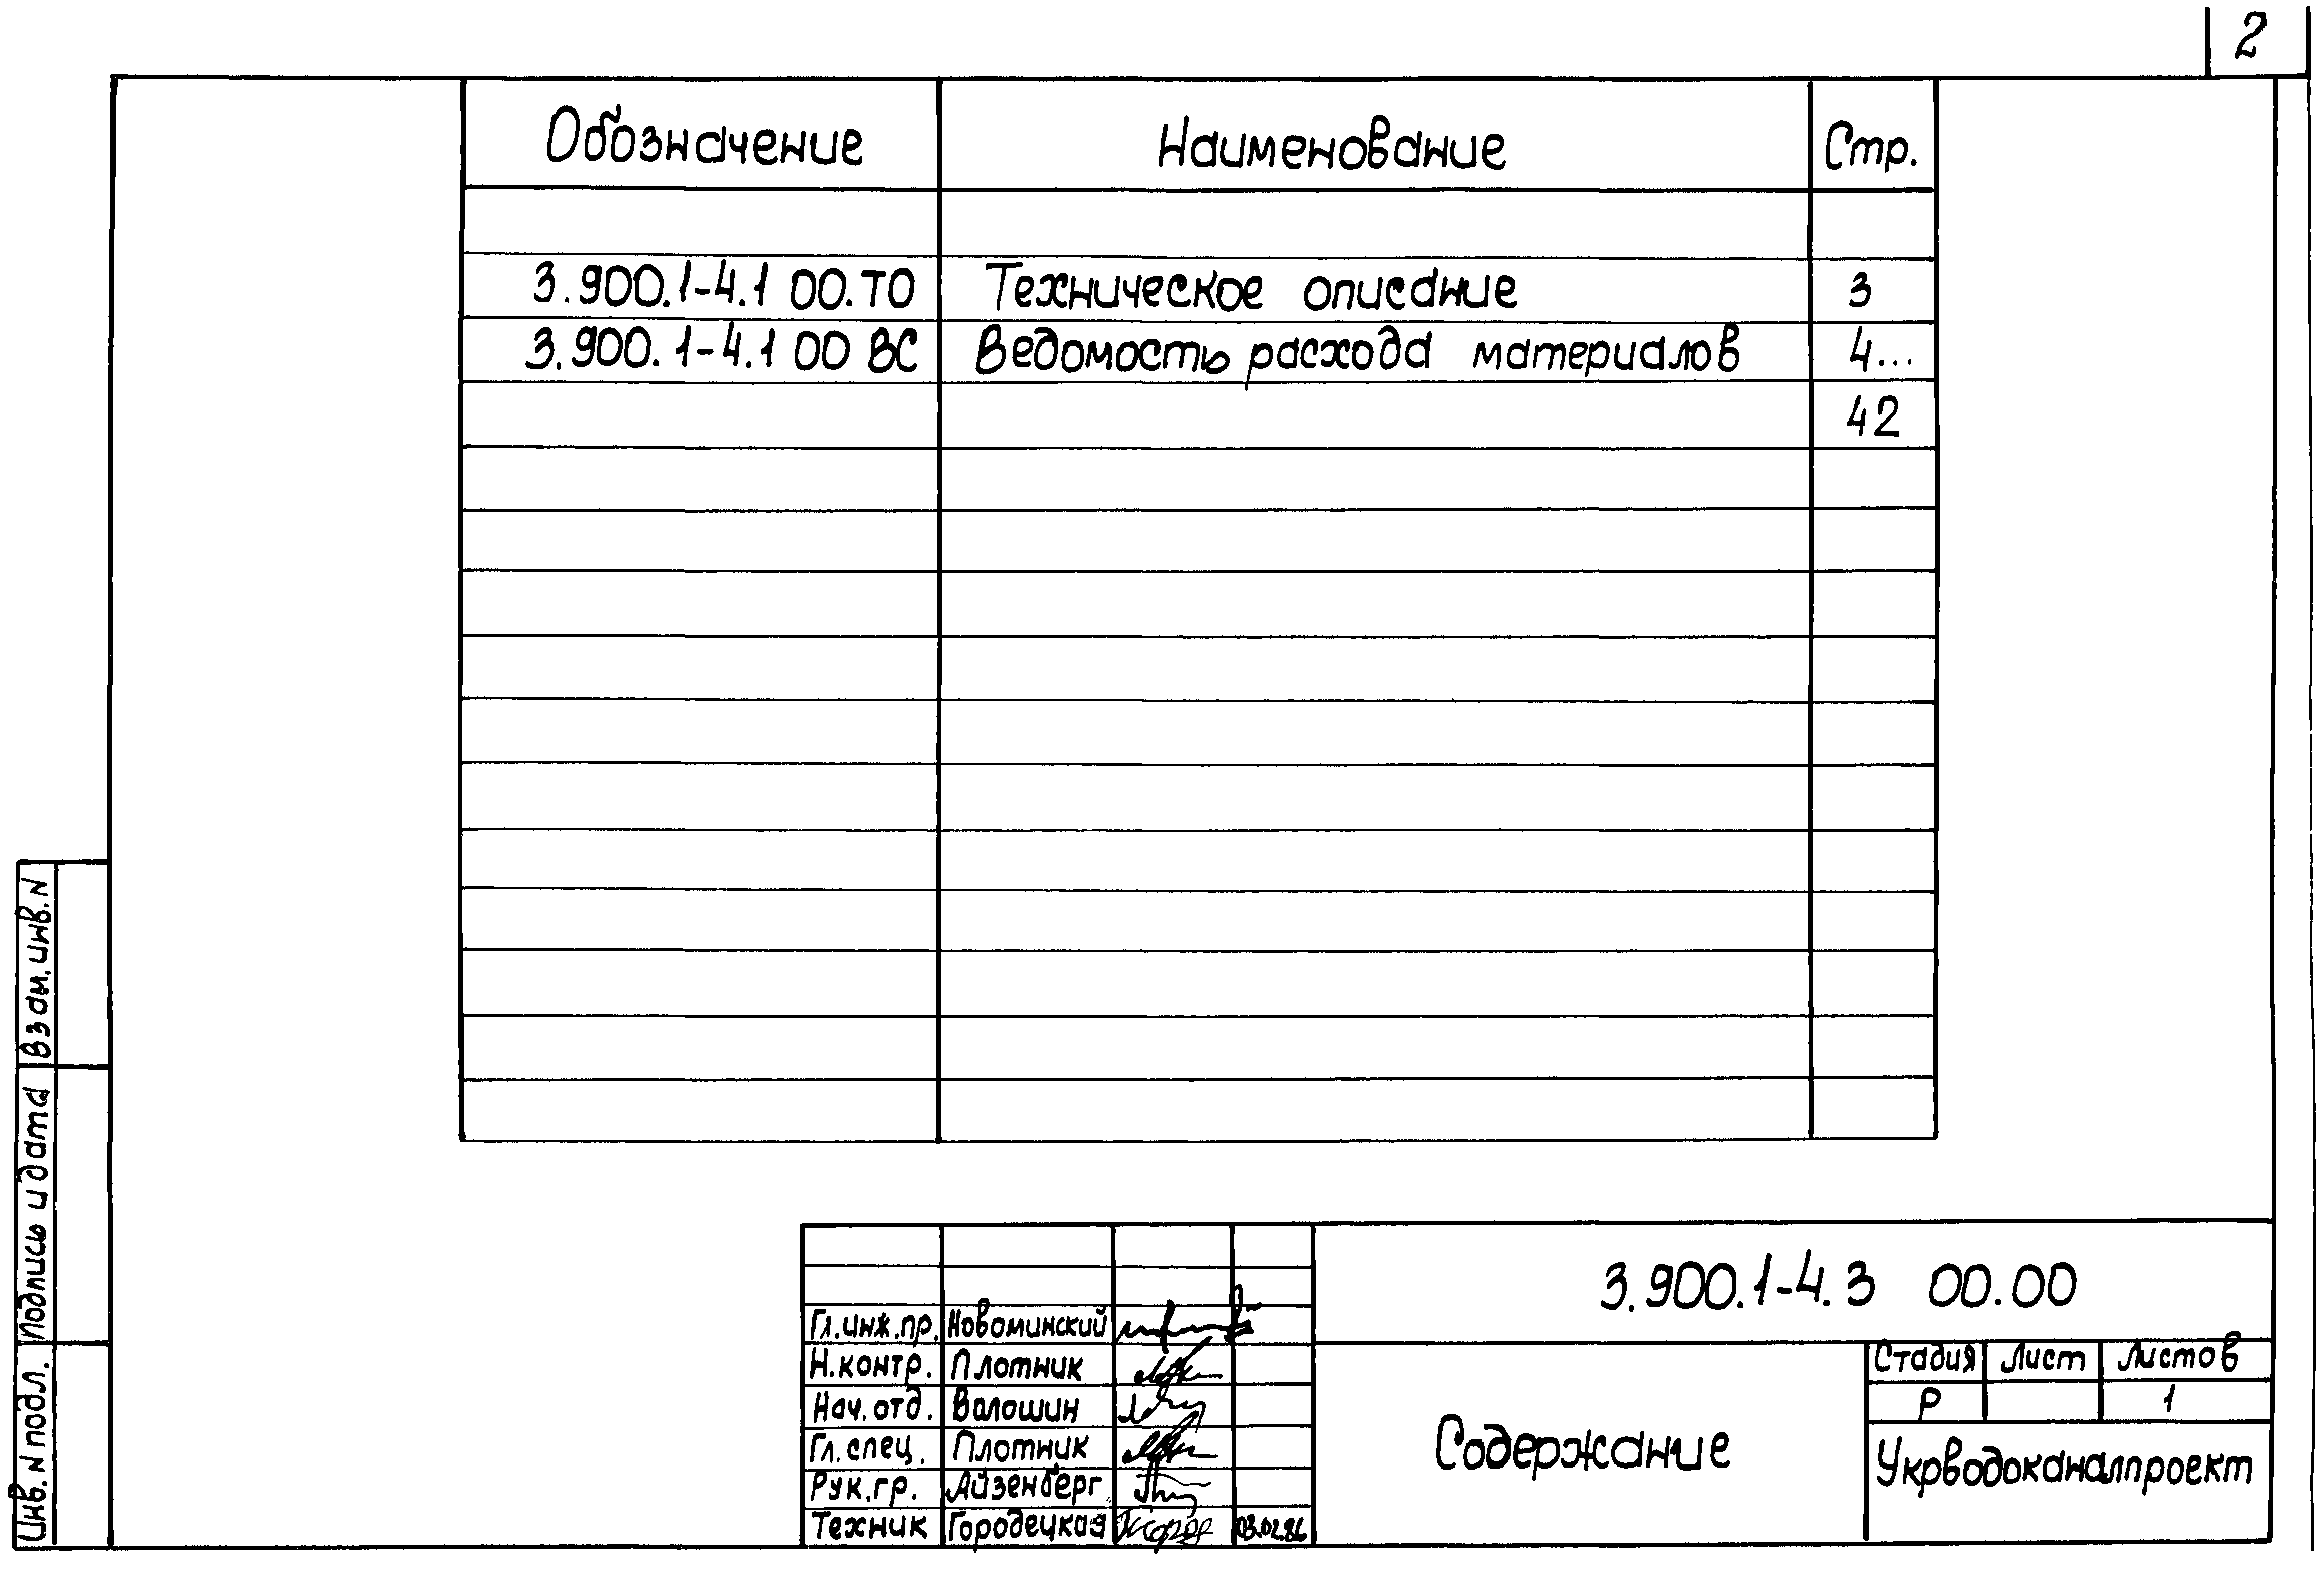 2
Обозначение Наименование Стр.
3.900.1-4.1 00.ТО Техническое описание 3
3.900.1-4.1 00 ВС Ведомость расхода материалов 4...
42
Взам.инв.N
Подпись и дата
Инв.N подл.
3.900.1-4.3 00.00
Гл.инж.пр. Новоминский
Н.контр. Плотник
Нач.отд. Валошин
Гл.спец. Плотник
Рук.гр. Айзенберг
Техник Городецкая 03.02.86
Содержание
Стадия Лист Листов
Р 1
Укрводоканалпроект